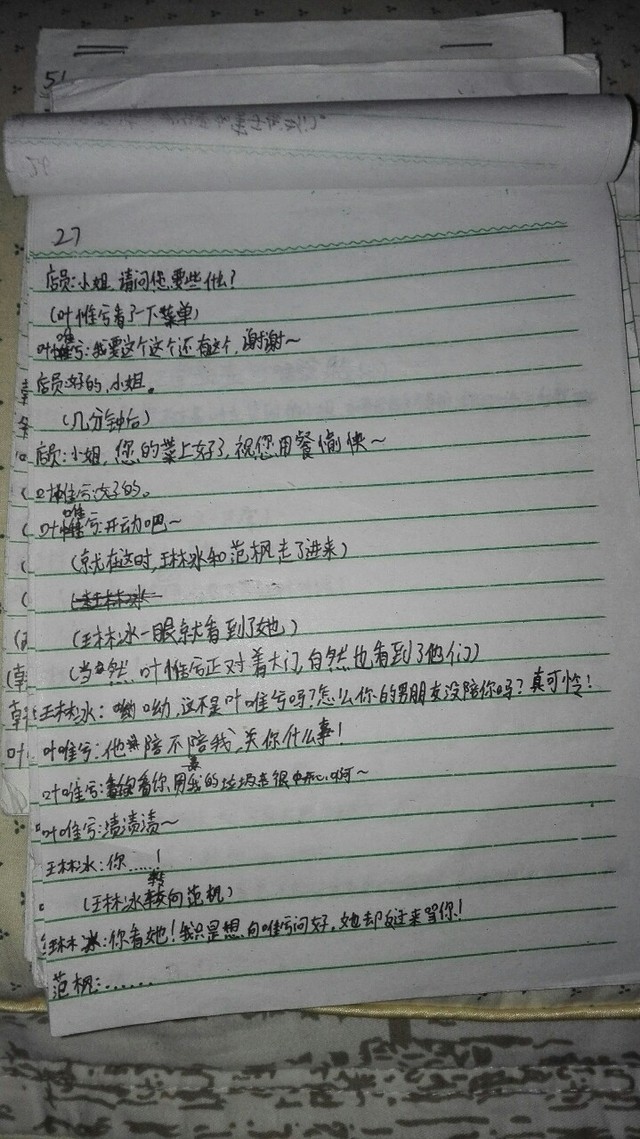 27
店员:小姐,请问您要些什么?
(叶惟兮看了一下菜单)
叶唯兮:我要这个这个还有这个,谢谢~
店员:好的,小姐。
(几分钟后)
店员:小姐,您的菜上好了,祝您用餐愉快~
叶惟兮:好的。
叶唯兮:开动吧~
(就在这时,王林冰和范枫走了进来)
(王林冰一眼就看到了她)
(当然,叶惟兮正对着大门,自然也看到了他们)
王林冰:哟呦,这不是叶唯兮吗?怎么你的男朋友没陪你吗?真可怜!
叶唯兮:他陪不陪我,关你什么事!
叶唯兮:看你用我的垃圾很开心啊~
叶唯兮:渍渍渍~
王林冰:你……!
(王林冰转向范枫)
王林冰:你看她!我只是想向唯兮问好,她却反过来骂你!
范枫:……